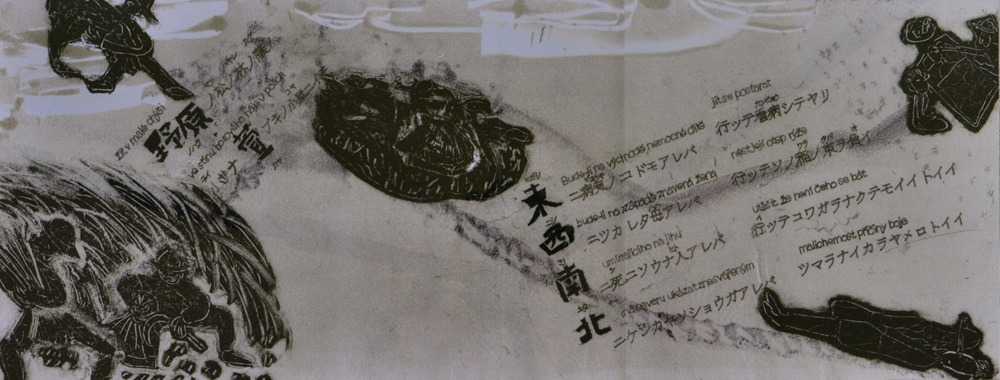 野原ノ松ノ林ノ
小サナ萱ブキノ小屋ニ
東西南北
Bude-li na východě nemocné dítě
ニ病気ノコドモアレバ
jít se postarat
行ッテ看病シテヤリ
bude-li na západě znavená žena
ニツカレタ母アレバ
nést její otep rýže
行ッテソノ稲ノ束ヲ負イ
umírajícího na jihu
ニ死ニソウナ人アレバ
utěšit že není čeho se bát
行ッテコワガラナクテモイイトイイ
na severu
ニケンカ
ショウガアレバ
malichernost příčiny boje
ツマラナイカラヤメロトイイ